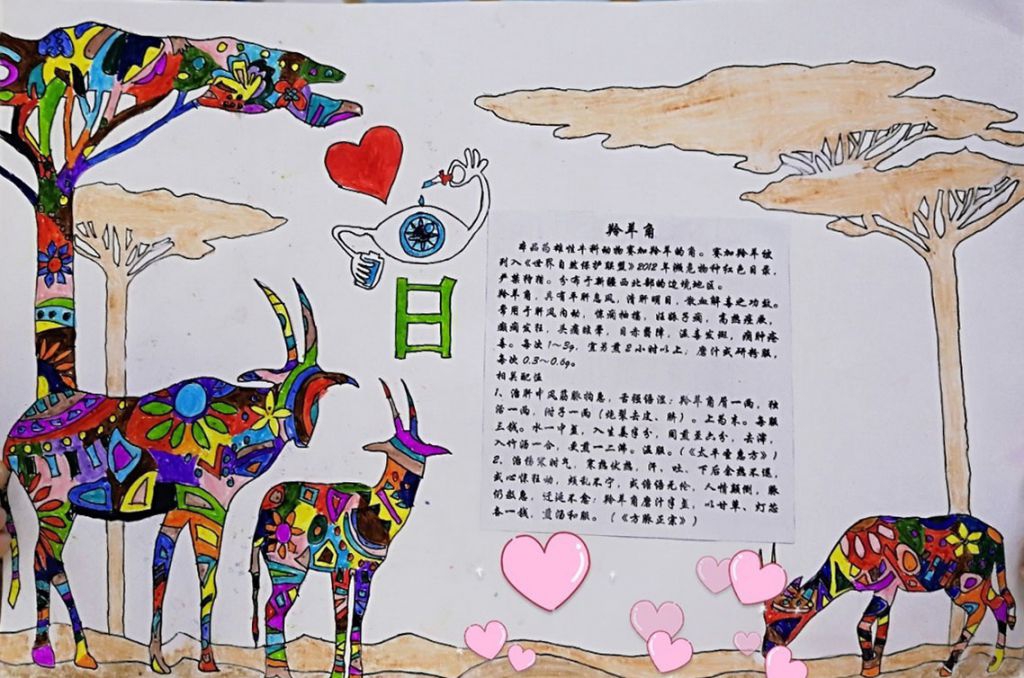 爱
眼
日
羚羊角
本品为雄性牛科动物赛加羚羊的角。赛加羚羊被
列入《世界自然保护联盟》2012年濒危物种红色目录，
严禁特猎。分布于新疆西北部的边境地区。
羚羊角，具有平肝息风，清肝明目，散血解毒之功效。
常用于肝风内动，惊痫抽搐，妊娠子痫，高热痉厥，
癫痫发狂，头痛眩晕，目赤翳障，温毒发斑，痈肿疮
毒。每次1～3g，宜另煎2小时以上；磨汁或研粉服，
每次0.3～0.6g。
相关配伍
1、治肝中风筋脉拘急，舌强语涩：羚羊角屑一两，独
活一两，附子一两（炮裂去皮、脐）。上为末。每服
三钱。水一中盏，入生姜半分，同煎至六分，去滓，
入竹沥一合，更煎一二沸。温服。（《太平圣惠方》）
2、治伤寒时气，寒热伏热，汗、吐、下后余热不退，
或心惊狂动，烦乱不宁，或谵语无伦，人情颠倒，脉
仍数急，迁延不愈：羚羊角磨汁半盏，以甘草、灯芯
各一钱，煎汤和服。（《方脉正宗》）